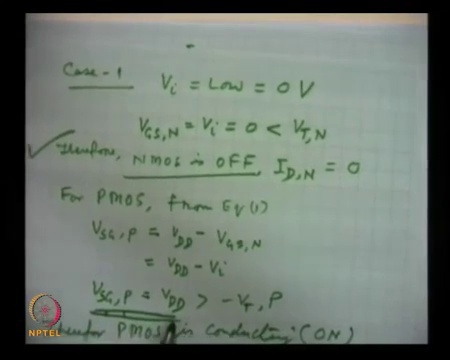 Case-1 Vi = Low = 0 V
VGS,N = Vi = 0 < VT,N
Therefore, NMOS is OFF, ID,N = 0
For PMOS, from Eq (1)
VSG,P = VDD - VGS,N
= VDD - Vi
VSG,P = VDD > - VT,P
Therefor PMOS is conducting (ON)
NPTEL